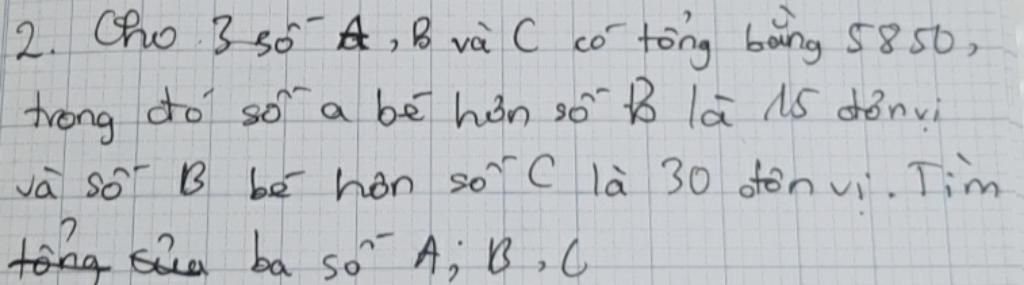 2. Cho 3 số A, B và C có tổng bằng 5850,
trong đó số a bé hơn số B là 15 đơn vị
và số B bé hơn số C là 30 đơn vị. Tìm
tổng của ba số A; B, C